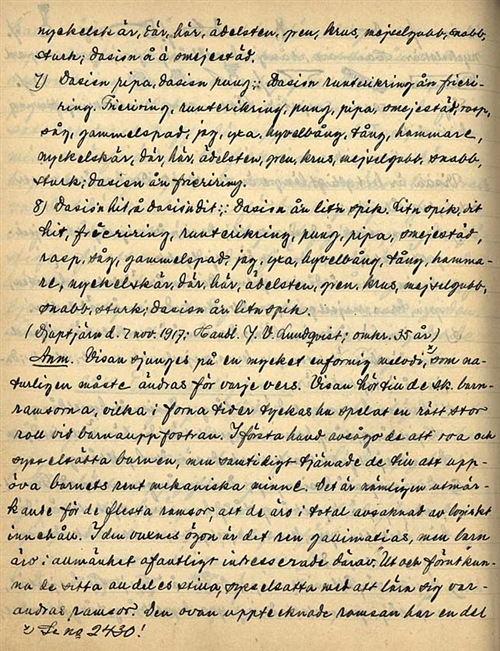 nyckelskär, där, här, ädelsten, pen, krus, mejselgubb, snabb,
stark; dasion å å smejestäd.
7) Dasion pipa, dasion pung;: Dasion runterikring ån fricri-
ring. Fricriring, runterikring, pung, pipa, smejestäd, rasp,
såg, gammelspad, jag, yxa, hyvelbång, tång, hammare,
nyckelskär, där, här, ädelsten, pen, krus, mejselgubb, snabb,
stark; dasion ån fricriring.
8) Dasion hit, å dasion dit;: Dasion ån litn spik. Litn spik, dit
hit, fricriring, runterikring, pung, pipa, smejestäd,
rasp, såg, gammelspad, jag, yxa, hyvelbång, tång, hamma-
re, nyckelskär, där, här, ädelsten, pen, krus, mejselgubb,
snabb, stark; dasion ån litn spik.
(Djuptjärn d. 7 nov. 1917; Handl. J. V. Lundqvist; omkr. 35 år)
Anm. Visan sjunges på en mycket enformig melodi, som na-
turligen måste ändras för varje vers. Visan hör till de s.k. barn-
ramsorna, vilka i forna tider tyckas ha spelat en rätt stor
roll vid barnauppfostran. I första hand avsågo de att roa och
sysselsätta barnen, men samtidigt tjänade de till att upp-
öva barnets rent mekaniska minne. Det är nämligen utmär-
kande för de flesta ramsor, att de äro i total avsaknad av logiskt
innehåll. I den vuxnes ögon är det ren gallimatias, men barn
äro i allmänhet ofantligt intresserade därav. Ut och förut kun-
na de sitta alldeles stilla, sysselsatta med att lära sig var-
andras ramsor. Den ovan upptecknade ramsan har en del
x) Se no 2430!